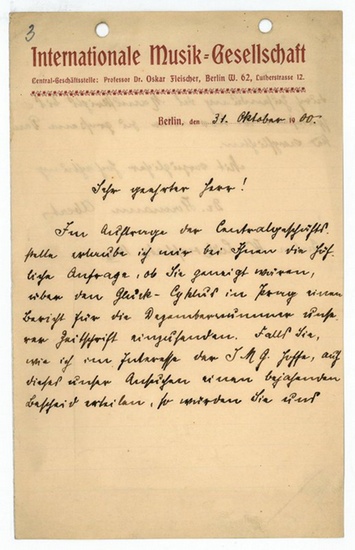 3
Internationale Musik=Gesellschaft
Central-Geschäftsstelle: Professor Dr. Oskar Fleischer, Berlin W. 62, Lutherstrasse 12.
Berlin, den 31. Oktober 1900.
Sehr geehrter Herr!
Im Auftrage der Centralgeschäfts
stelle erlaube ich mir bei Ihnen die höf-
liche Anfrage, ob Sie geneigt wären,
über den Gluck-Cyklus in Prag einen
Bericht für die Dezembernummer unse-
rer Zeitschrift einzusenden. Falls Sie,
wie ich im Interesse der I M G hoffe, auf
dieses unser Ansuchen einen bejahenden
Bescheid erteilen, so würden Sie uns